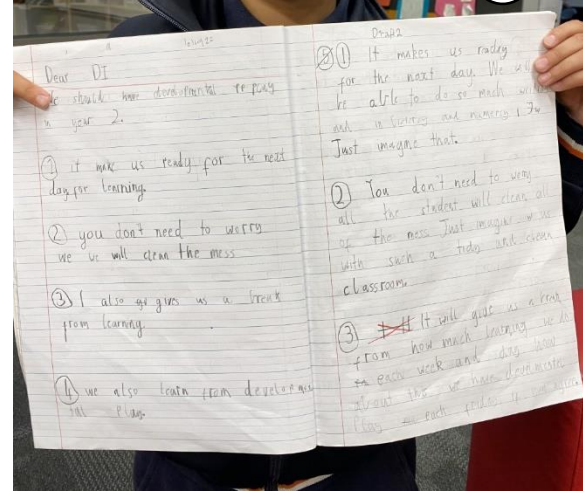 Dear DI
We should have developmental play
in year 2.
① it make us ready for the next
day for learning.
② you don't need to worry
we will clean the mess
③ I also gives us a break
from learning.
④ we also learn from developmen
tal Play.
Draft 2
① It makes us ready
for the next day. We will
be able to do so much writing
and
Just imagine that.
② You don't need to worry
all the student will clean all
of the mess. Just imagine
with such a tidy and clean
classroom.
③ It will give us a break
from how much learning we do
each week and day. How
about this we have
Play each